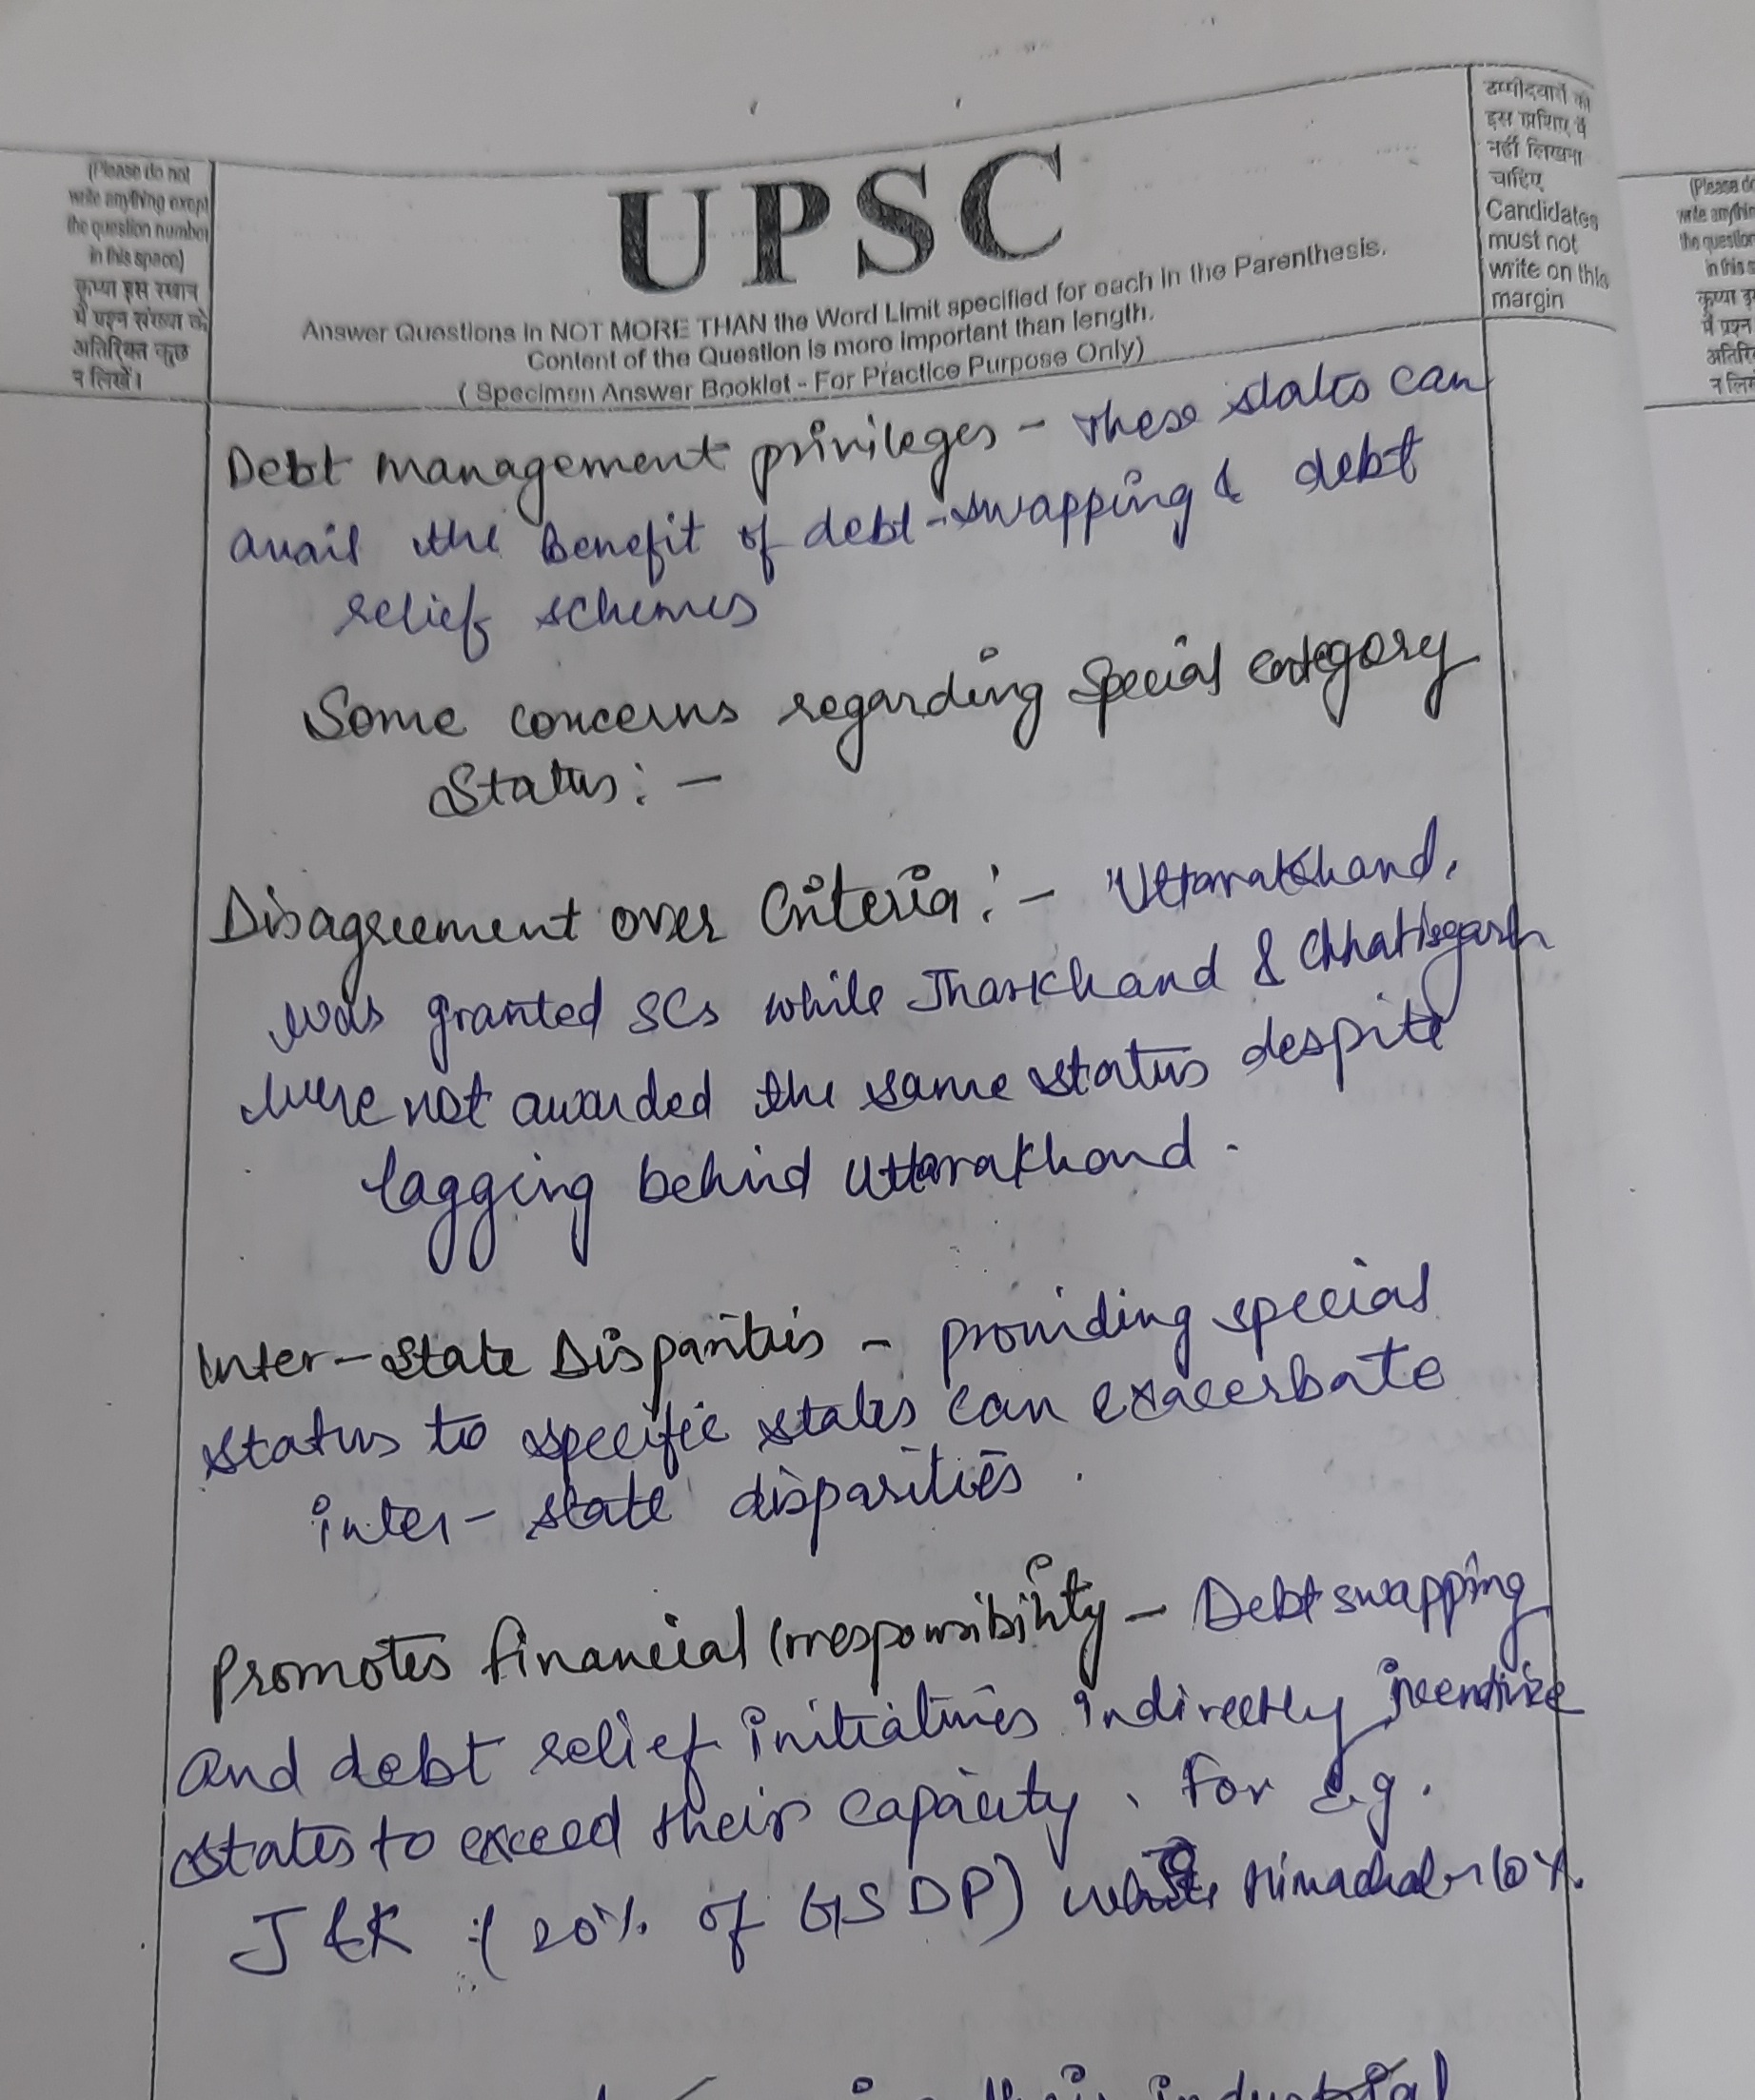 (Please do not
write anything exept
the question number
in this space)
कृप्या इस स्थान
में प्रश्न संख्या के
अतिरिक्त कुछ
न लिखें।
UPSC
Answer Questions in NOT MORE THAN the Word Limit specified for each in the Parenthesis.
Content of the Question is more important than length.
( Specimen Answer Booklet - For Practice Purpose Only)
उम्मीदवारों को
इस हाशिए में
नहीं लिखना
चाहिए
Candidates
must not
write on this
margin
Debt management privileges - These states can
avail the benefit of debt-swapping & debt
relief schemes
Some concerns regarding Special category
Status: -
Disagreement over Criteria: - Uttarakhand,
was granted SCs while Jharkhand & Chhatisgarh
were not awarded the same status despite
lagging behind Uttarakhand.
Inter-state Disparities - providing special
status to specific states can exacerbate
inter-state disparities.
Promotes financial irresponsibility - Debt swapping
and debt relief initiatives indirectly incentivize
states to exceed their capacity. For e.g.
J&K :( 20% of GSDP) Himachal 10%.
(Please do
write anythin
the question
in this s
कृप्या इ
में प्रश्न
अतिरि
न लिर